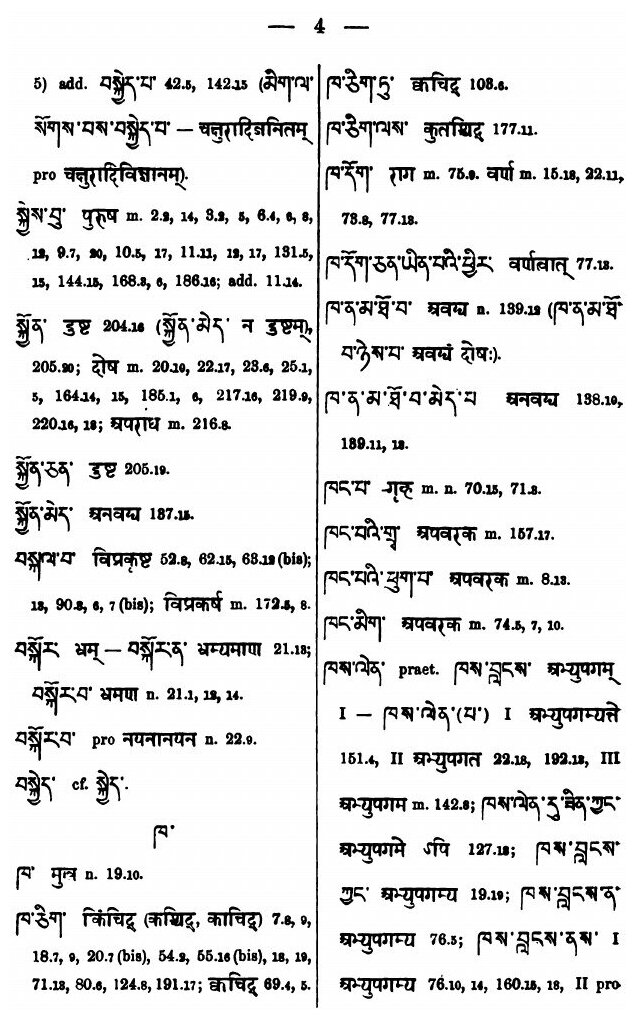 — 4 —
5) add. བསྐྱེད་པ་ 42.5, 142.15 (མིག་ལ་
སོགས་པས་བསྐྱེད་པ་ — चक्षुरादिजनितम्
pro चक्षुरादिविज्ञानम्).
སྐྱེས་བུ་ पुरुष m. 2.2, 14, 3.2, 5, 6.4, 6, 8,
12, 9.7, 20, 10.5, 17, 11.11, 12, 17, 131.5,
15, 144.15, 168.3, 6, 186.16; add. 11.14.
སྐྱོན་ दुष्ट 204.16 (སྐྱོན་མེད་ न दुष्टम्),
205.20; दोष m. 20.19, 22.17, 23.6, 25.1,
5, 164.14, 15, 185.1, 6, 217.16, 219.9,
220.16, 18; अपराध m. 216.8.
སྐྱོན་ཅན་ दुष्ट 205.19.
སྐྱོན་མེད་ अनवद्य 137.15.
བསྐལ་པ་ विप्रकृष्ट 52.8, 62.15, 63.12 (bis);
13, 90.3, 6, 7 (bis); विप्रकर्ष m. 172.5, 8.
བསྐོར་ भ्रम् — བསྐོར་ན་ भ्रम्यमाण 21.13;
བསྐོར་བ་ भ्रमण n. 21.1, 12, 14.
བསྐོར་བ་ pro नयनानयन n. 22.9.
བསྐྱེད་ cf. སྐྱེད་.
ཁ་
ཁ་ मुख n. 19.10.
ཁ་ཅིག་ किंचिद् (कश्चिद्, काचिद्) 7.8, 9,
18.7, 9, 20.7 (bis), 54.2, 55.16 (bis), 18, 19,
71.13, 80.6, 124.8, 191.17; क्वचिद् 69.4, 5.
ཁ་ཅིག་ཏུ་ क्वचिद् 103.6.
ཁ་ཅིག་ལས་ कुतश्चिद् 177.11.
ཁ་དོག་ राग m. 75.9. वर्ण m. 15.18, 22.11,
73.8, 77.13.
ཁ་དོག་ཅན་ཡིན་པའི་ཕྱིར་ वर्णत्वात् 77.13.
ཁ་ན་མ་ཐོ་བ་ अवद्य n. 139.12 (ཁ་ན་མ་ཐོ་
བ་ཉེས་པ་ अवद्यं दोषः).
ཁ་ན་མ་ཐོ་བ་མེད་པ अनवद्य 138.19,
139.11, 12.
ཁང་པ་ गृह m. n. 70.15, 71.3.
ཁང་པའི་གྲྭ་ अपवरक m. 157.17.
ཁང་པའི་ཕུག་པ་ अपवरक m. 8.13.
ཁང་མིག་ अपवरक m. 74.5, 7, 10.
ཁས་ལེན་ praet. ཁས་བླངས་ अभ्युपगम्
I — ཁས་ལེན་(པ་) I अभ्युपगम्यते
151.4, II अभ्युपगत 22.18, 192.13, III
अभ्युपगम m. 142.8; ཁས་ལེན་དུ་ཟིན་ཀྱང་
अभ्युपगमे ऽपि 127.18; ཁས་བླངས་
ཀྱང་ अभ्युपगम्य 19.19; ཁས་བླངས་ན་
अभ्युपगम्य 76.5; ཁས་བླངས་ནས་ I
अभ्युपगम्य 76.10, 14, 160.15, 18, II pro